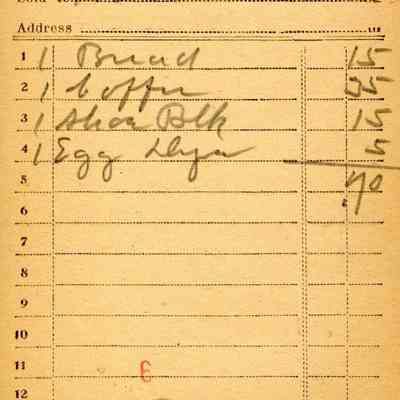 Address
1 1 Bread 15
2 1 Coffee 35
3 1 Shoe Blk 15
4 1 Egg Dyes 5
5 .70
6
7
8
9
10
11 6
12